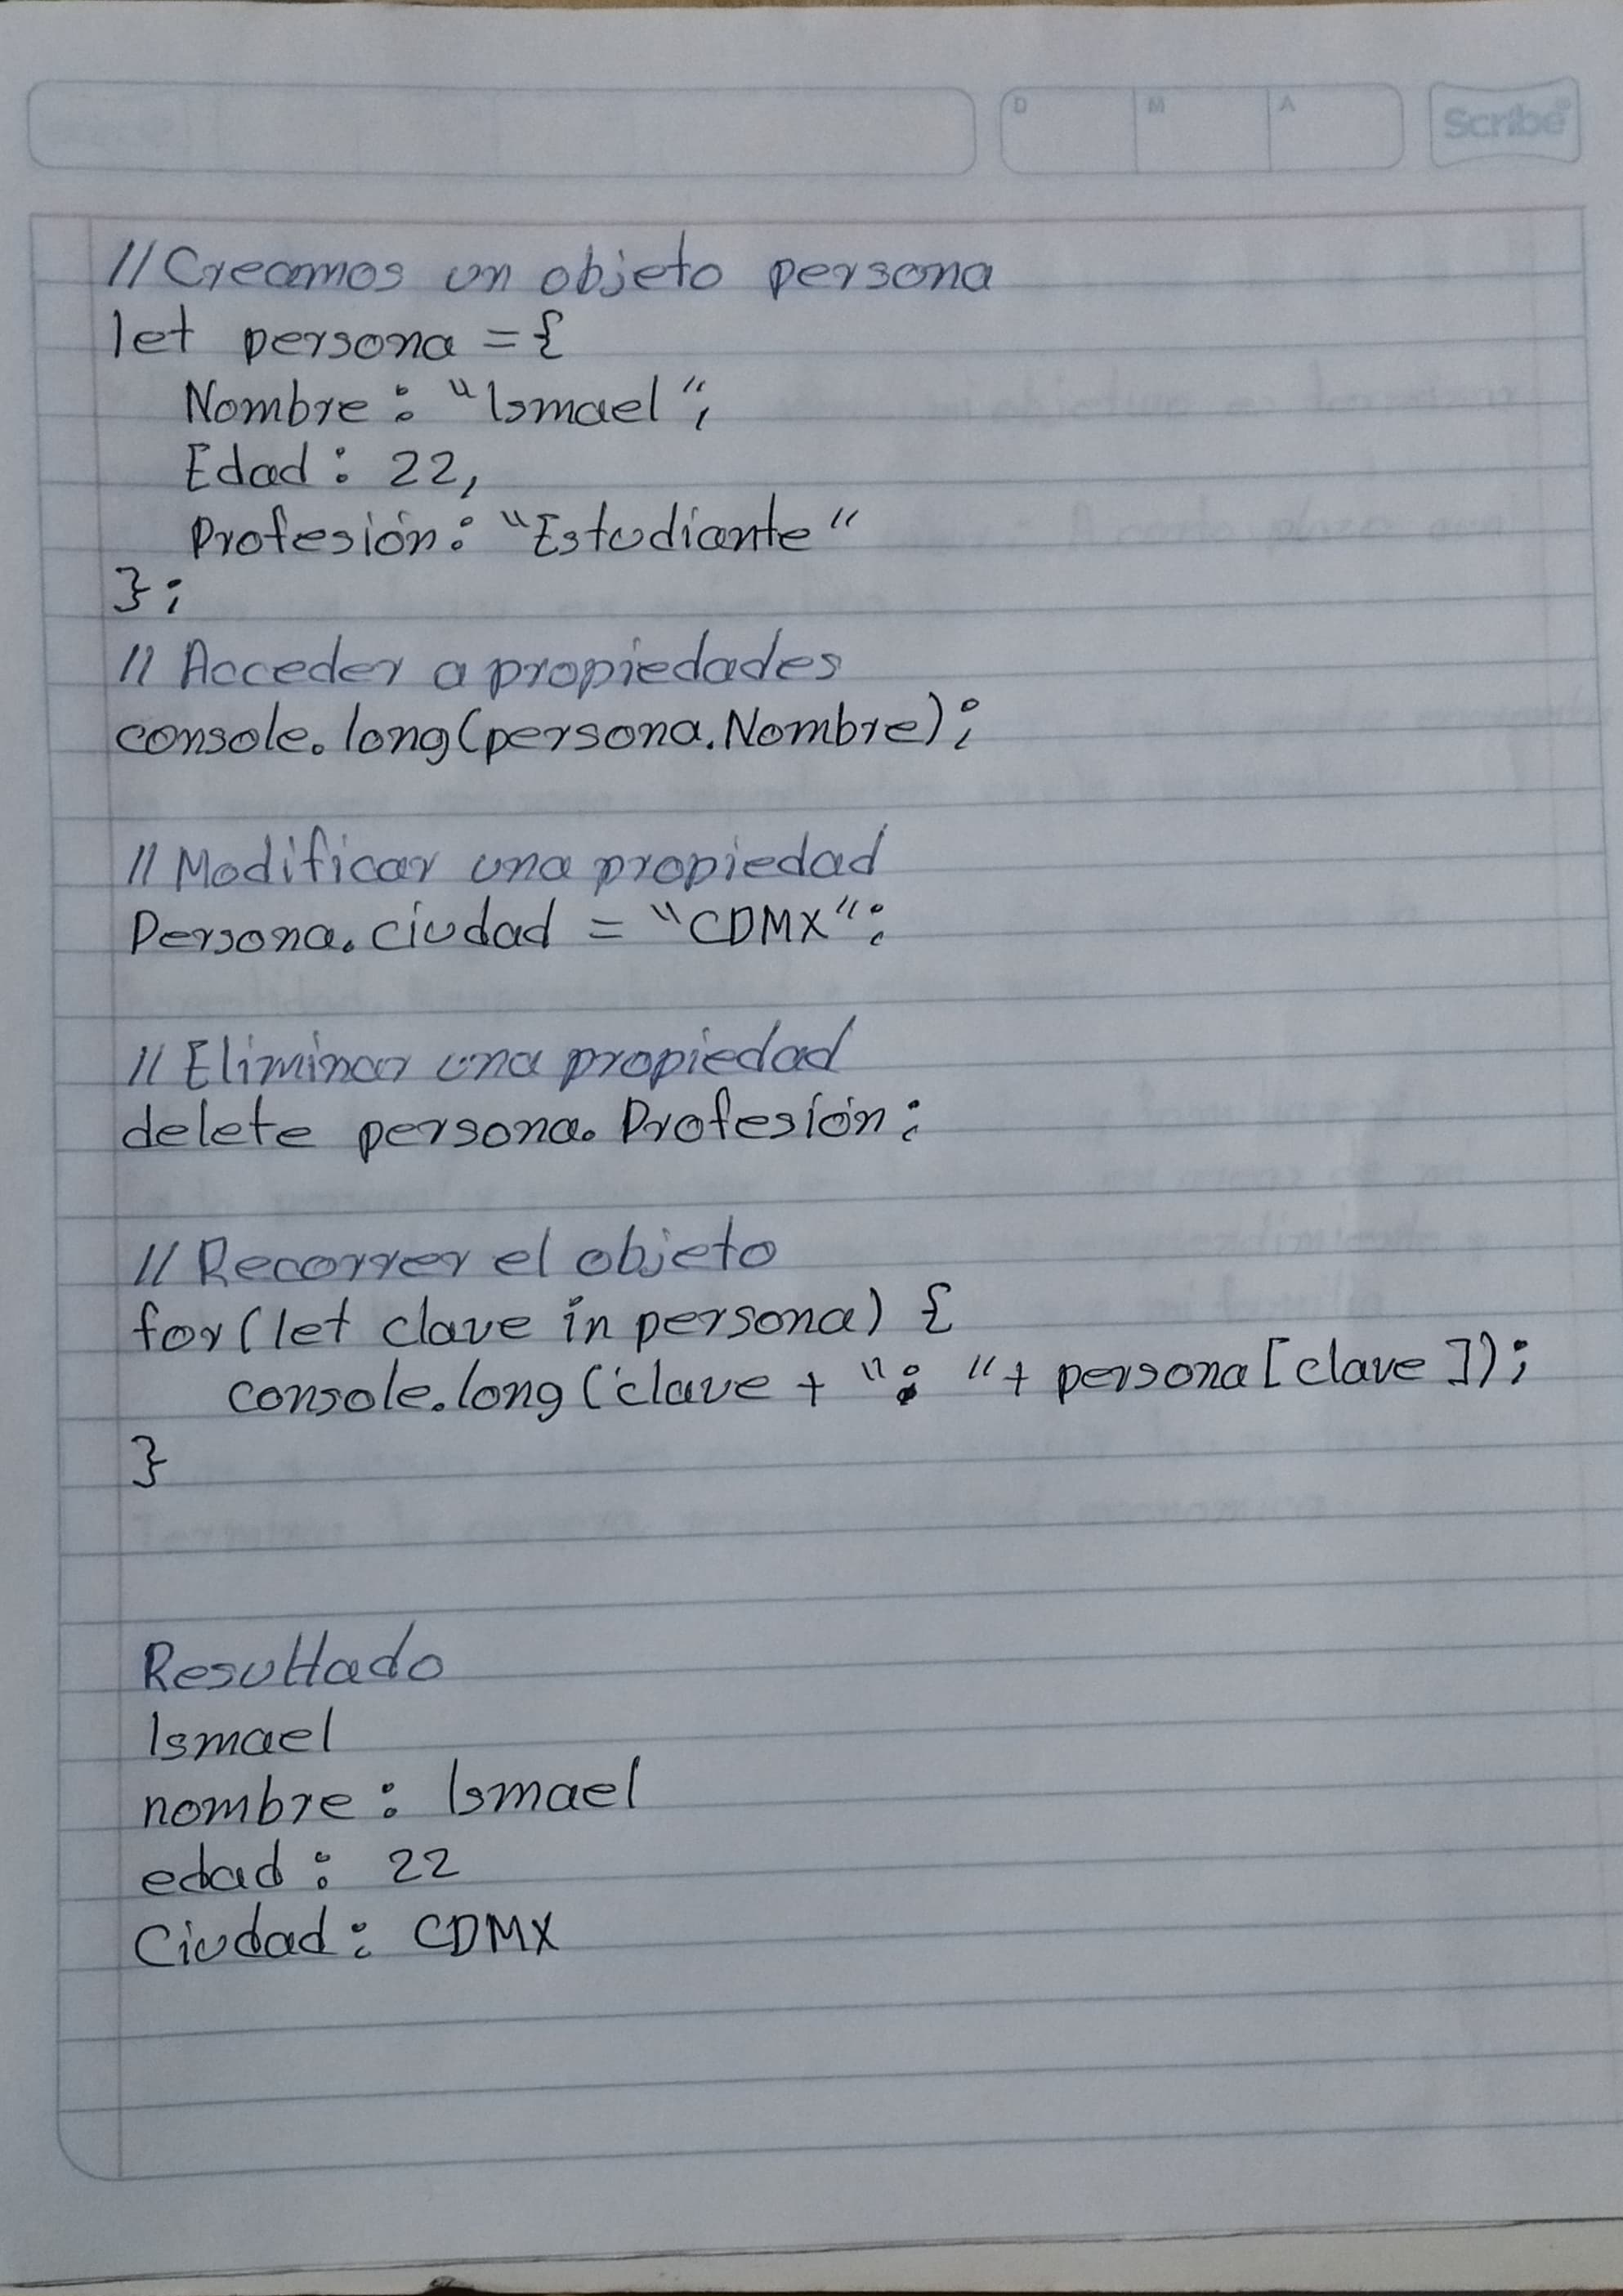 D M A Scribe
//Creamos un objeto persona
let persona ={
Nombre: "Ismael",
Edad: 22,
Profesión: "Estudiante"
};
// Acceder a propiedades
console.long(persona.Nombre);
// Modificar una propiedad
Persona.ciudad = "CDMX";
// Eliminar una propiedad
delete persona.Profesión;
// Recorrer el objeto
for(let clave in persona) {
console.long(clave + ": "+ persona[clave]);
}
Resultado
Ismael
nombre: Ismael
edad: 22
Ciudad: CDMX